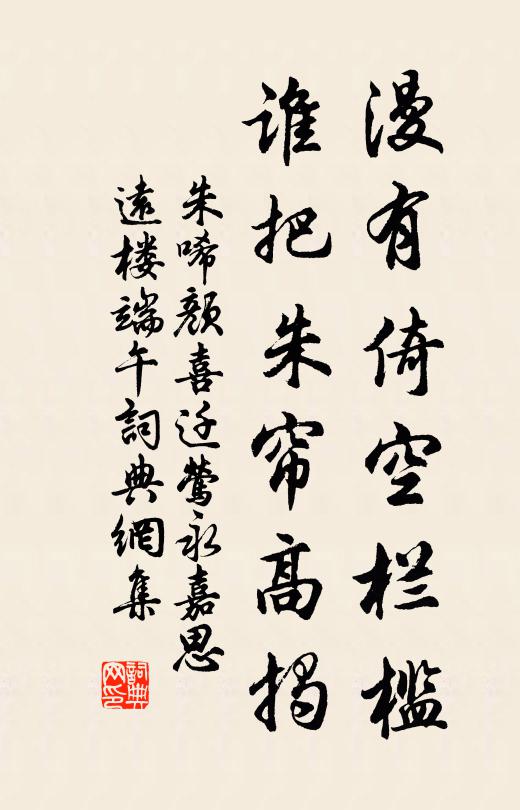 漫有倚空栏槛
谁把朱帘高揭
朱唏颜喜迁莺永嘉思
远楼端午詞典網集
詞典网印